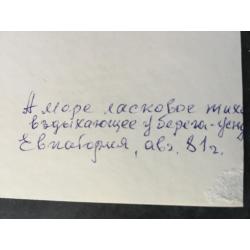 А море ласковое тихо
вздыхающее у берега-
Евпатория, авг. 81г.